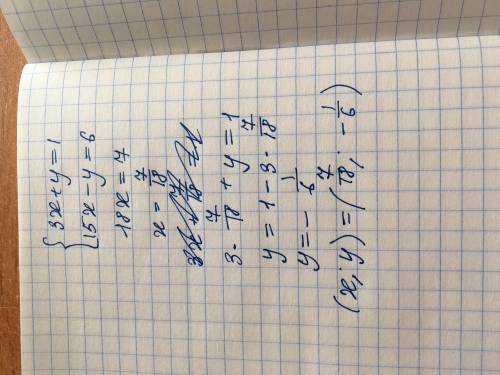 { 3x+y=1
15x-y=6
18x=7
x = 7/18
3 · 7/18 + y = 1
y = 1 - 3 · 7/18
y = - 1/6
(x; y) = (7/18; - 1/6)